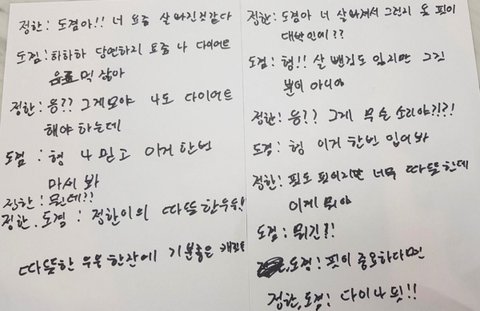 정한: 도겸아!! 너 요즘 살 빠진것같다
도겸: 하하하 당연하지 요즘 나 다이어트
음료 먹잖아
정한: 응?? 그게모야 나도 다이어트
해야 하는데
도겸 : 형 나 믿고 이거 한번
마셔 봐
정한: 뭔데?!
정한, 도겸 : 정한이의 따뜻한우유!
따뜻한 우유 한잔에 기분좋은
정한: 도겸아 너 살 빠져서 그런지 옷 핏이
대박인데??
도겸: 형!! 살 뺀것도 있지만 그것
뿐이 아니야
정한: 응?? 그게 무슨 소리야?!?!
도겸: 형 이거 한번 입어봐
정한: 핏도 핏이지만 너무 따뜻한데
이게 뭐야
도겸: 뭐긴?!
도겸: 핏이 중요하다면
정한,도겸: 다이나핏!!